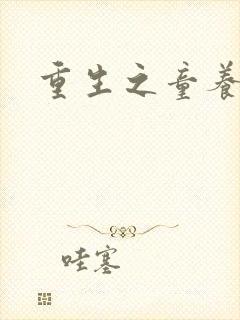 重生之童養
哇塞